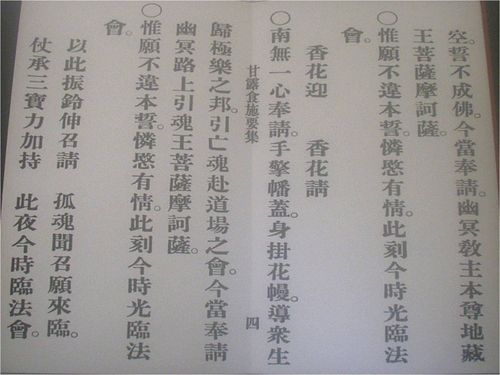 空。誓不成佛。今當奉請。幽冥敎主本尊地藏
王菩薩摩訶薩。
○惟願不違本誓。憐愍有情。此刻今時光臨法
會。
香花迎　香花請
○南無一心奉請。手擎幡蓋。身掛花幔。導衆生
甘露食施要集　四
歸極樂之邦。引亡魂赴道場之會。今當奉請
幽冥路上引魂王菩薩摩訶薩。
○惟願不違本誓。憐愍有情。此刻今時光臨法
會。
以此振鈴伸召請　孤魂聞召願來臨。
仗承三寶力加持　此夜今時臨法會。